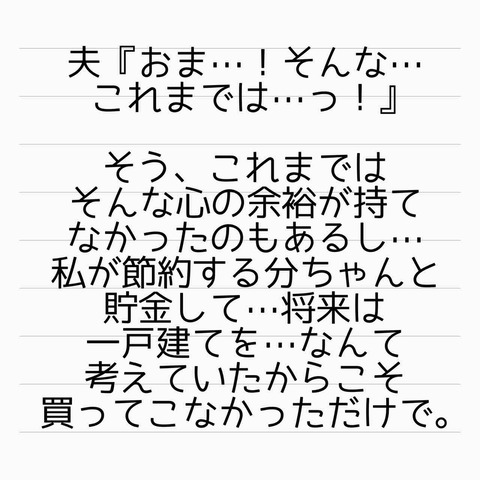 夫『おま…！そんな…
これまでは…っ！』
そう、これまでは
そんな心の余裕が持て
なかったのもあるし…
私が節約する分ちゃんと
貯金して…将来は
一戸建てを…なんて
考えていたからこそ
買ってこなかっただけで。